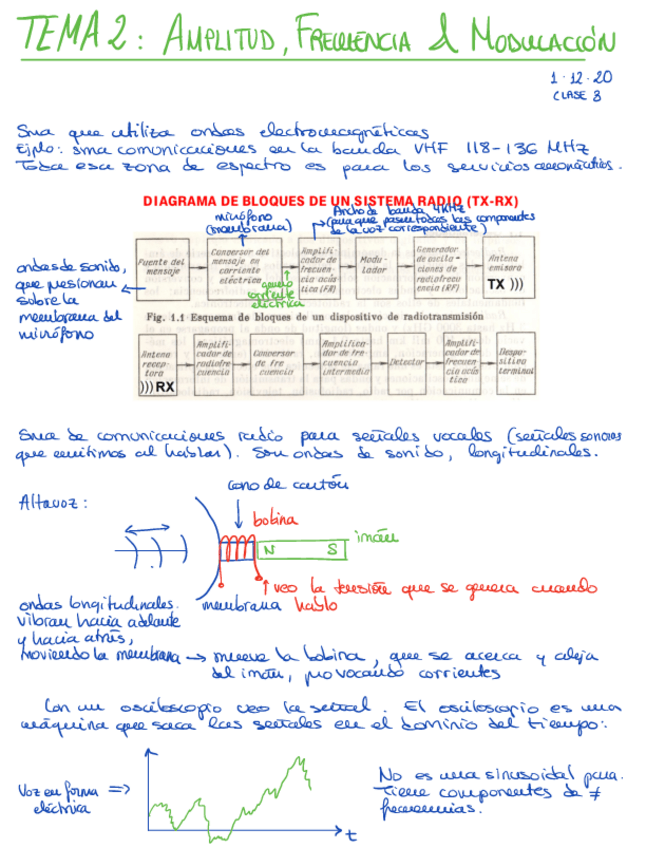 TEMA 2: AMPLITUD, FRECUENCIA & MODULACIÓN
1·12·20
CLASE 3
Sma que utiliza ondas electromagnéticas
Ejplo: sma comunicaciones en la banda VHF 118-136 MHz
Toda esa zona de espectro es para los servicios aeronáuticos.
DIAGRAMA DE BLOQUES DE UN SISTEMA RADIO (TX-RX)
micrófono
(membrana)
Ancho de banda 4KHz
(para que pasen todas las componentes
de la voz correspondiente)
ondas de sonido,
que presionan
sobre la
membrana del
micrófono
Fuente del
mensaje
Conversor del
mensaje en
corriente
eléctrica
genero
corriente
eléctrica
Amplifi-
cador de
frecuen-
cia acús
tica (FA)
Modu-
lador
Generador
de oscila-
ciones de
radiofrecu
encia (RF)
Antena
emisora
TX )))
Fig. 1.1 Esquema de bloques de un dispositivo de radiotransmisión
Antena
recep-
tora
)))RX
Amplifi-
cador de
radiofre
cuencia
Conversor
de fre
cuencia
Amplifica
dor de fre
cuencia
intermedia
Detector
Amplifi-
cador de
frecuen-
cia acús
tica
Dispo-
sitivo
terminal
Sma de comunicaciones radio para señales vocales (señales sonoras
que emitimos al hablar). Son ondas de sonido, longitudinales.
Altavoz:
cono de cartón
bobina
imán
N S
veo la tensión que se genera cuando
hablo
membrana
ondas longitudinales.
vibran hacia adelante
y hacia atrás,
moviendo la membrana → mueve la bobina, que se acerca y aleja
del imán, provocando corrientes
Con un osciloscopio veo la señal. El osciloscopio es una
máquina que saca las señales en el dominio del tiempo:
Voz en forma =>
eléctrica
t
No es una sinusoidal pura.
Tiene componentes de ≠
frecuencias.